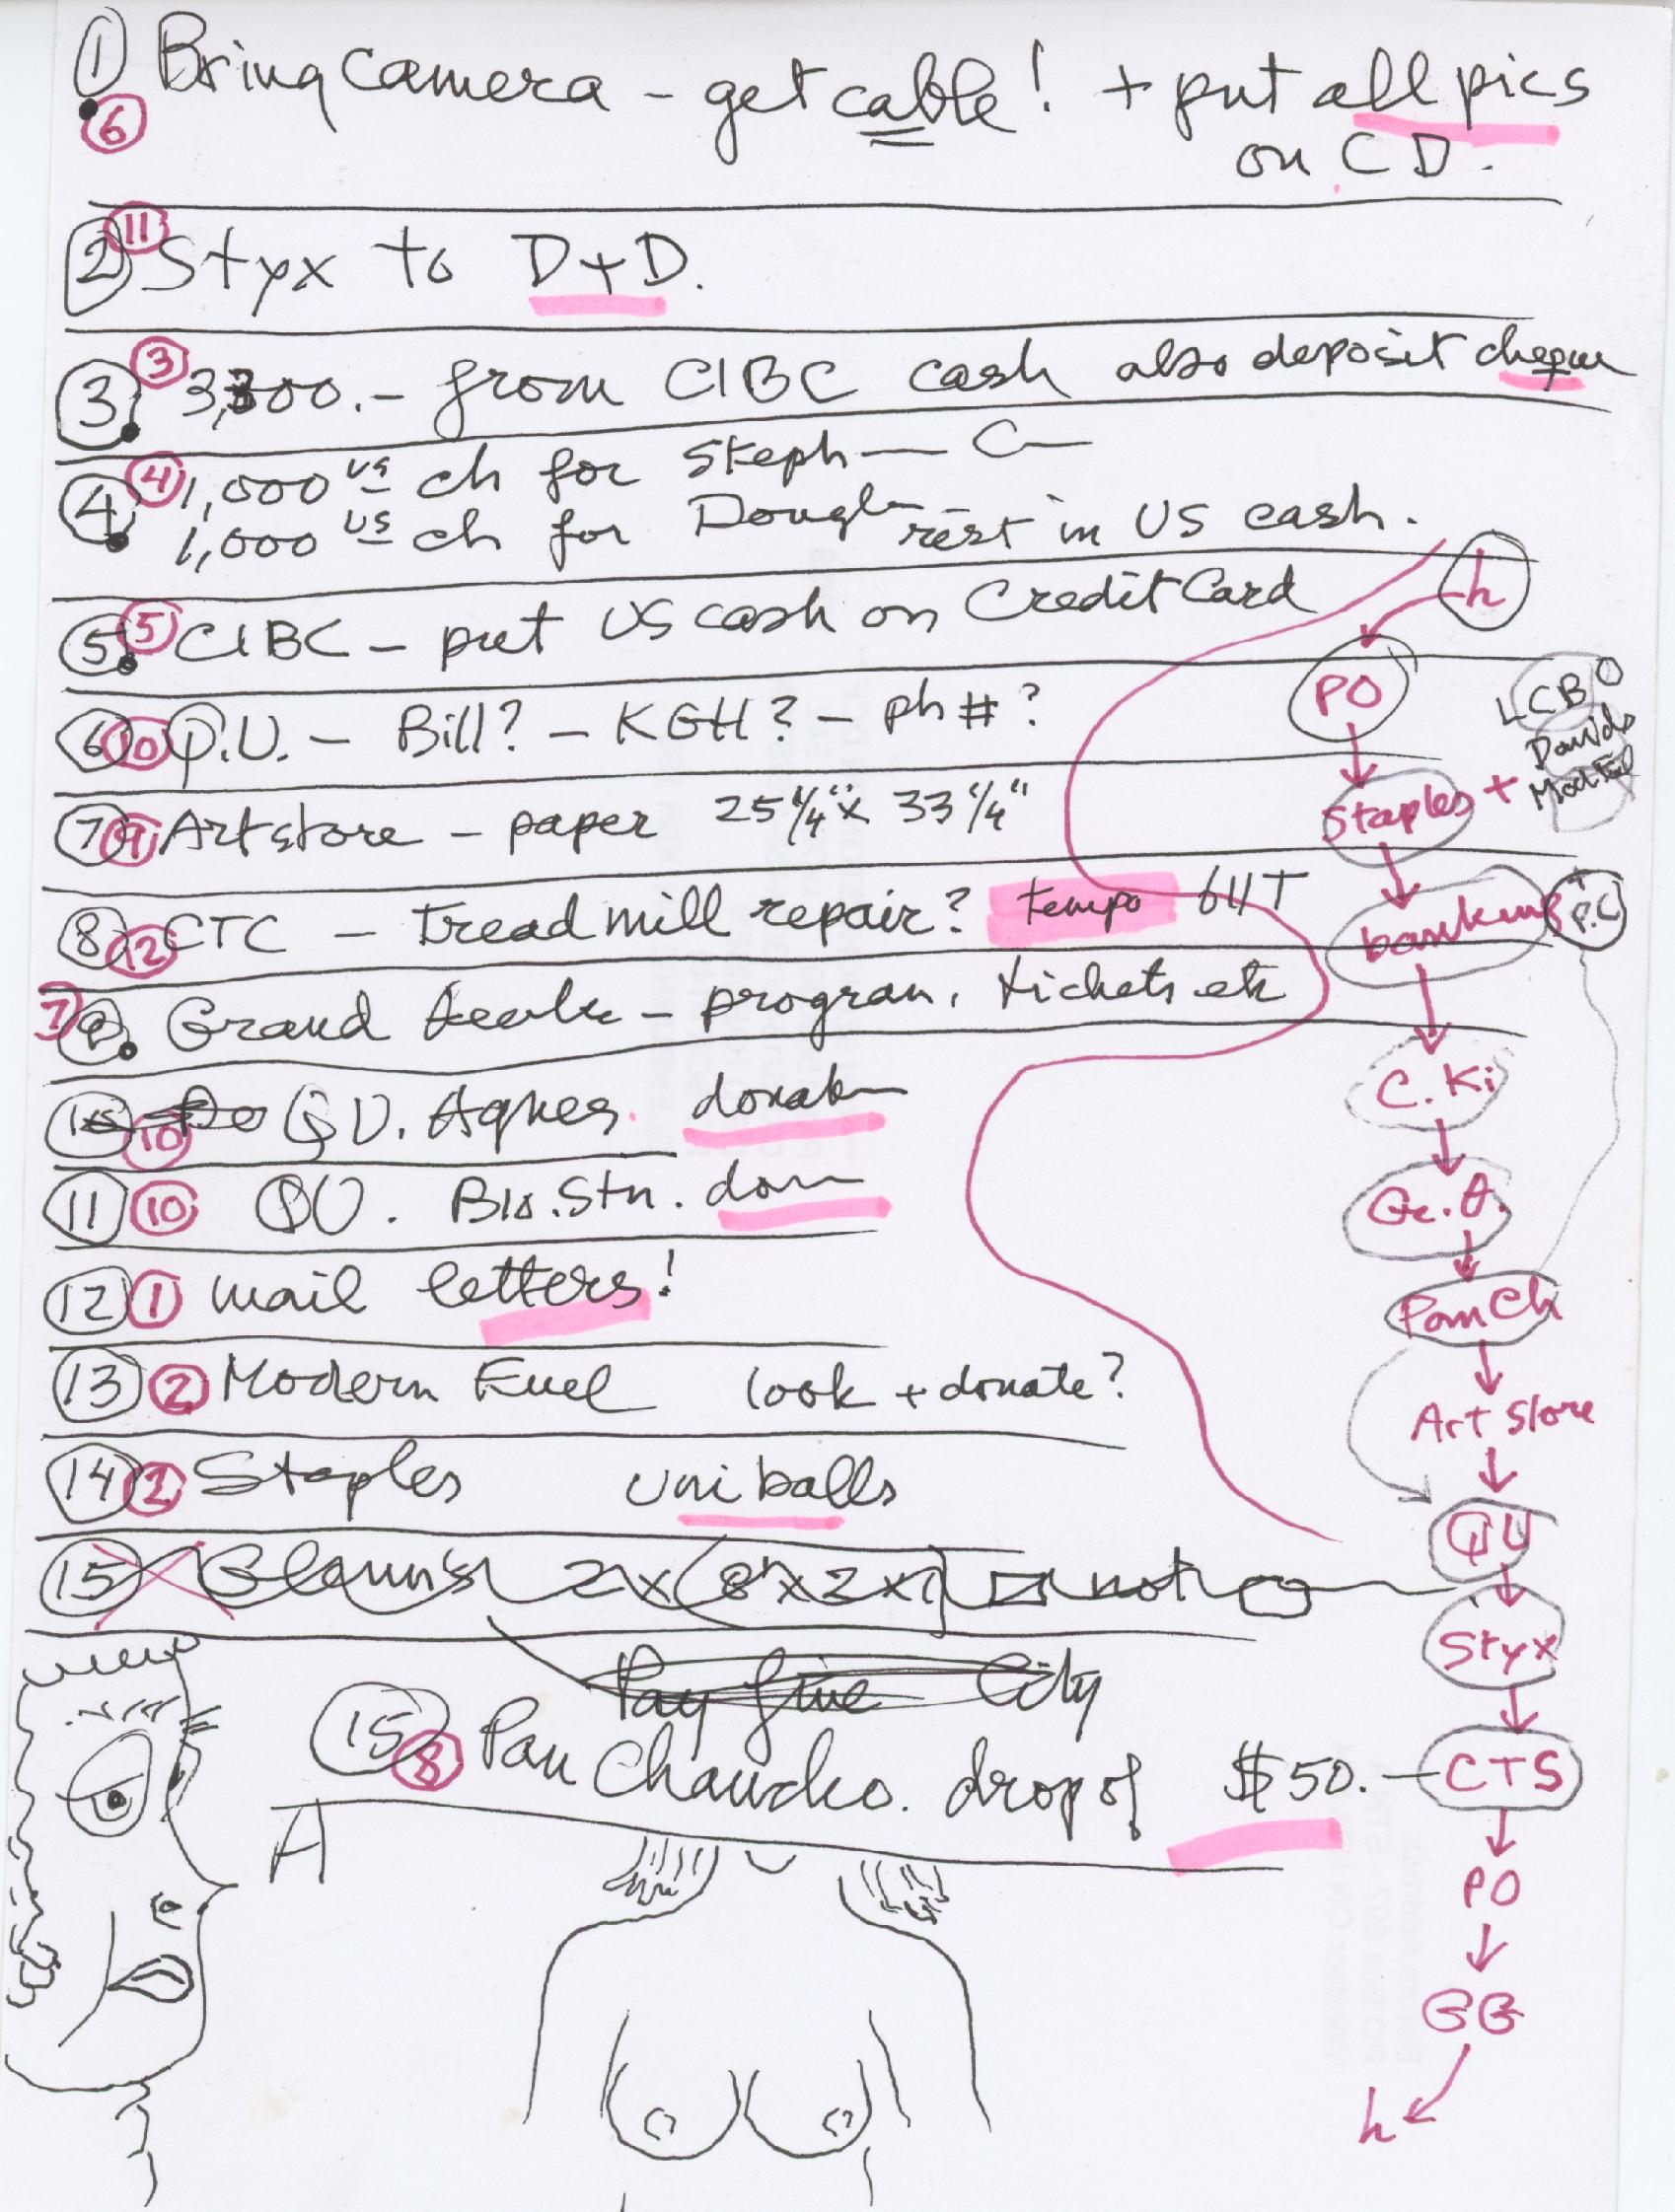 ① Bring Camera - get cable! + put all pics
⑥
on CD.
② ⑪ Styx to D+D.
③ ③ 3,300.- from CIBC cash also deposit cheque
④ ④ 1,000 US ch for Steph
1,000 US ch for Dougl rest in US cash.
⑤ ⑤ CIBC - put US cash on Credit Card
⑥ ⑩ Q.U. - Bill? - KGH? - ph #?
⑦ ⑨ Artstore - paper 25 1/4" x 33 1/4"
⑧ ⑫ CTC - Treadmill repair? tempo 611T
7 ⑨ Grand - program, tickets etc
⑩ Q U. Agnes. donat
⑪ ⑩ QU. Bio. Stn. don
⑫ ① mail letters!
⑬ ② Modern Fuel look + donate?
⑭ ② Staples uniballs
⑮ 2x (8'x2x1) not
Pay fine City
⑮ ⑧ Pan Chancho. drop of $50.-
A
h
PO
LCBO
Davids
Mod. Fuel
Staples +
banking + P.C
C. Ki
Gr. θ.
Pan Ch
Art Store
QU
Styx
CTS
PO
GG
h